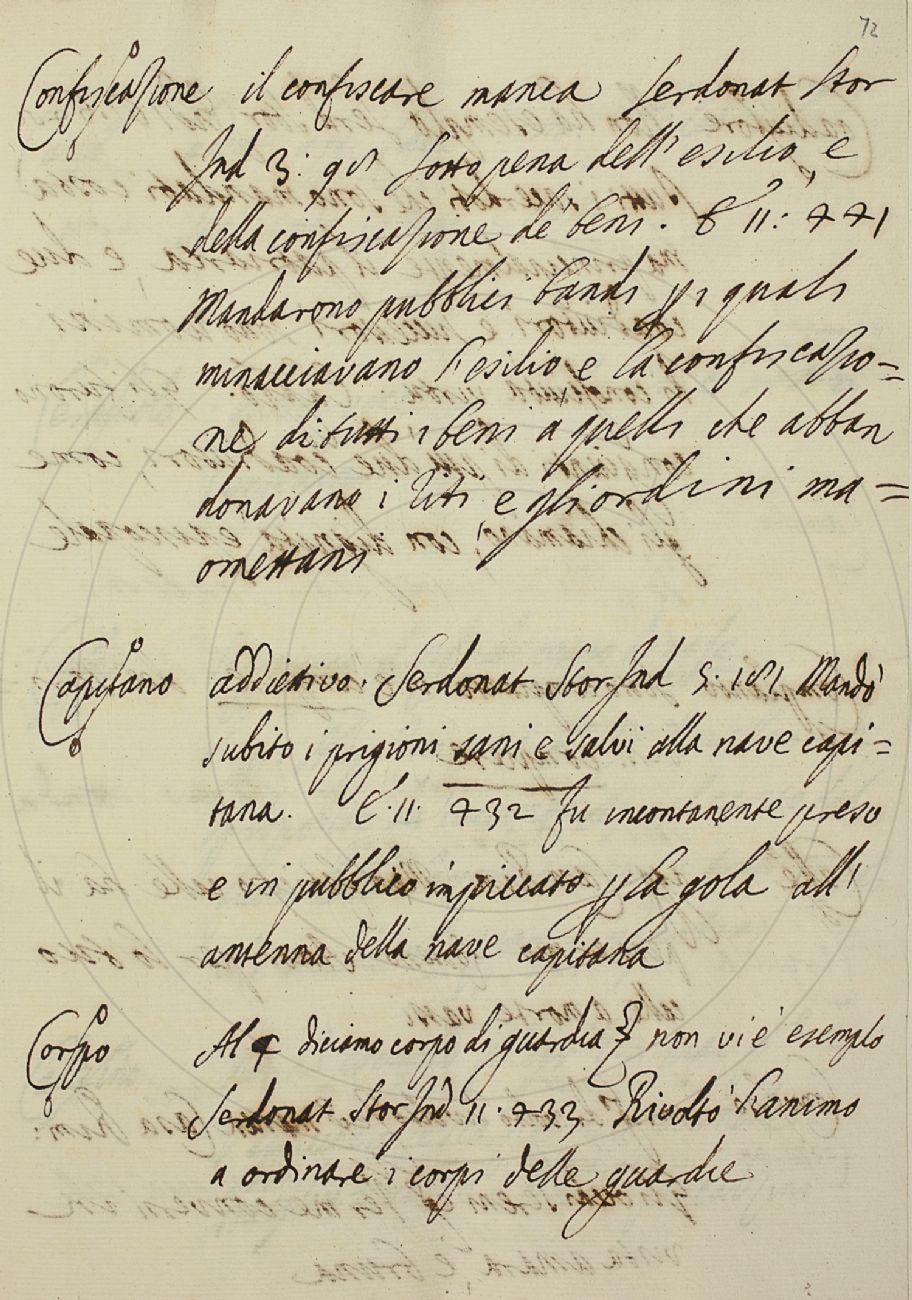 72
Confiscazione il confiscare manca Serdonat Stor
Ind 3: 98 sotto pena dell'esilio, e
della confiscazione de' beni. E 11: 441
Mandarono pubblici bandi pp i quali
minacciavano l'esilio e la confiscazio=
ne di tutti i beni a quelli che abban
donavano i liti, e gli ordini ma=
omettani
Capitano addiettivo. Serdonat Stor Ind 5. 181 Mandò
subito i prigioni sani e salvi alla nave capi=
tana. E' 11. 432 fu incontanente preso
e in pubblico impiccato pp la gola all'
antenna della nave capitana
Corpo Al diciamo corpo di guardia } non vi è esemplo
Serdonat Stor Ind 11. 433 Rivoltò l'animo
a ordinare i corpi delle guardie